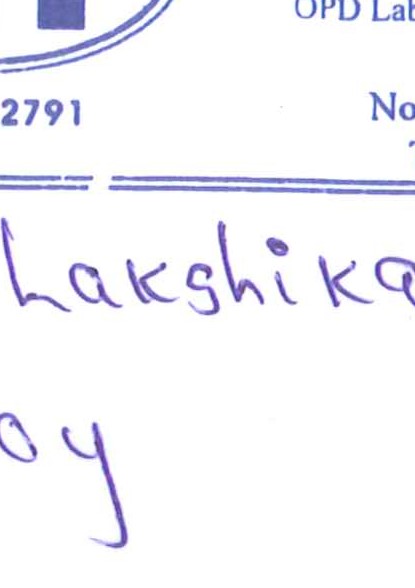 OPD Lab
2791
No
Lakshika
oy